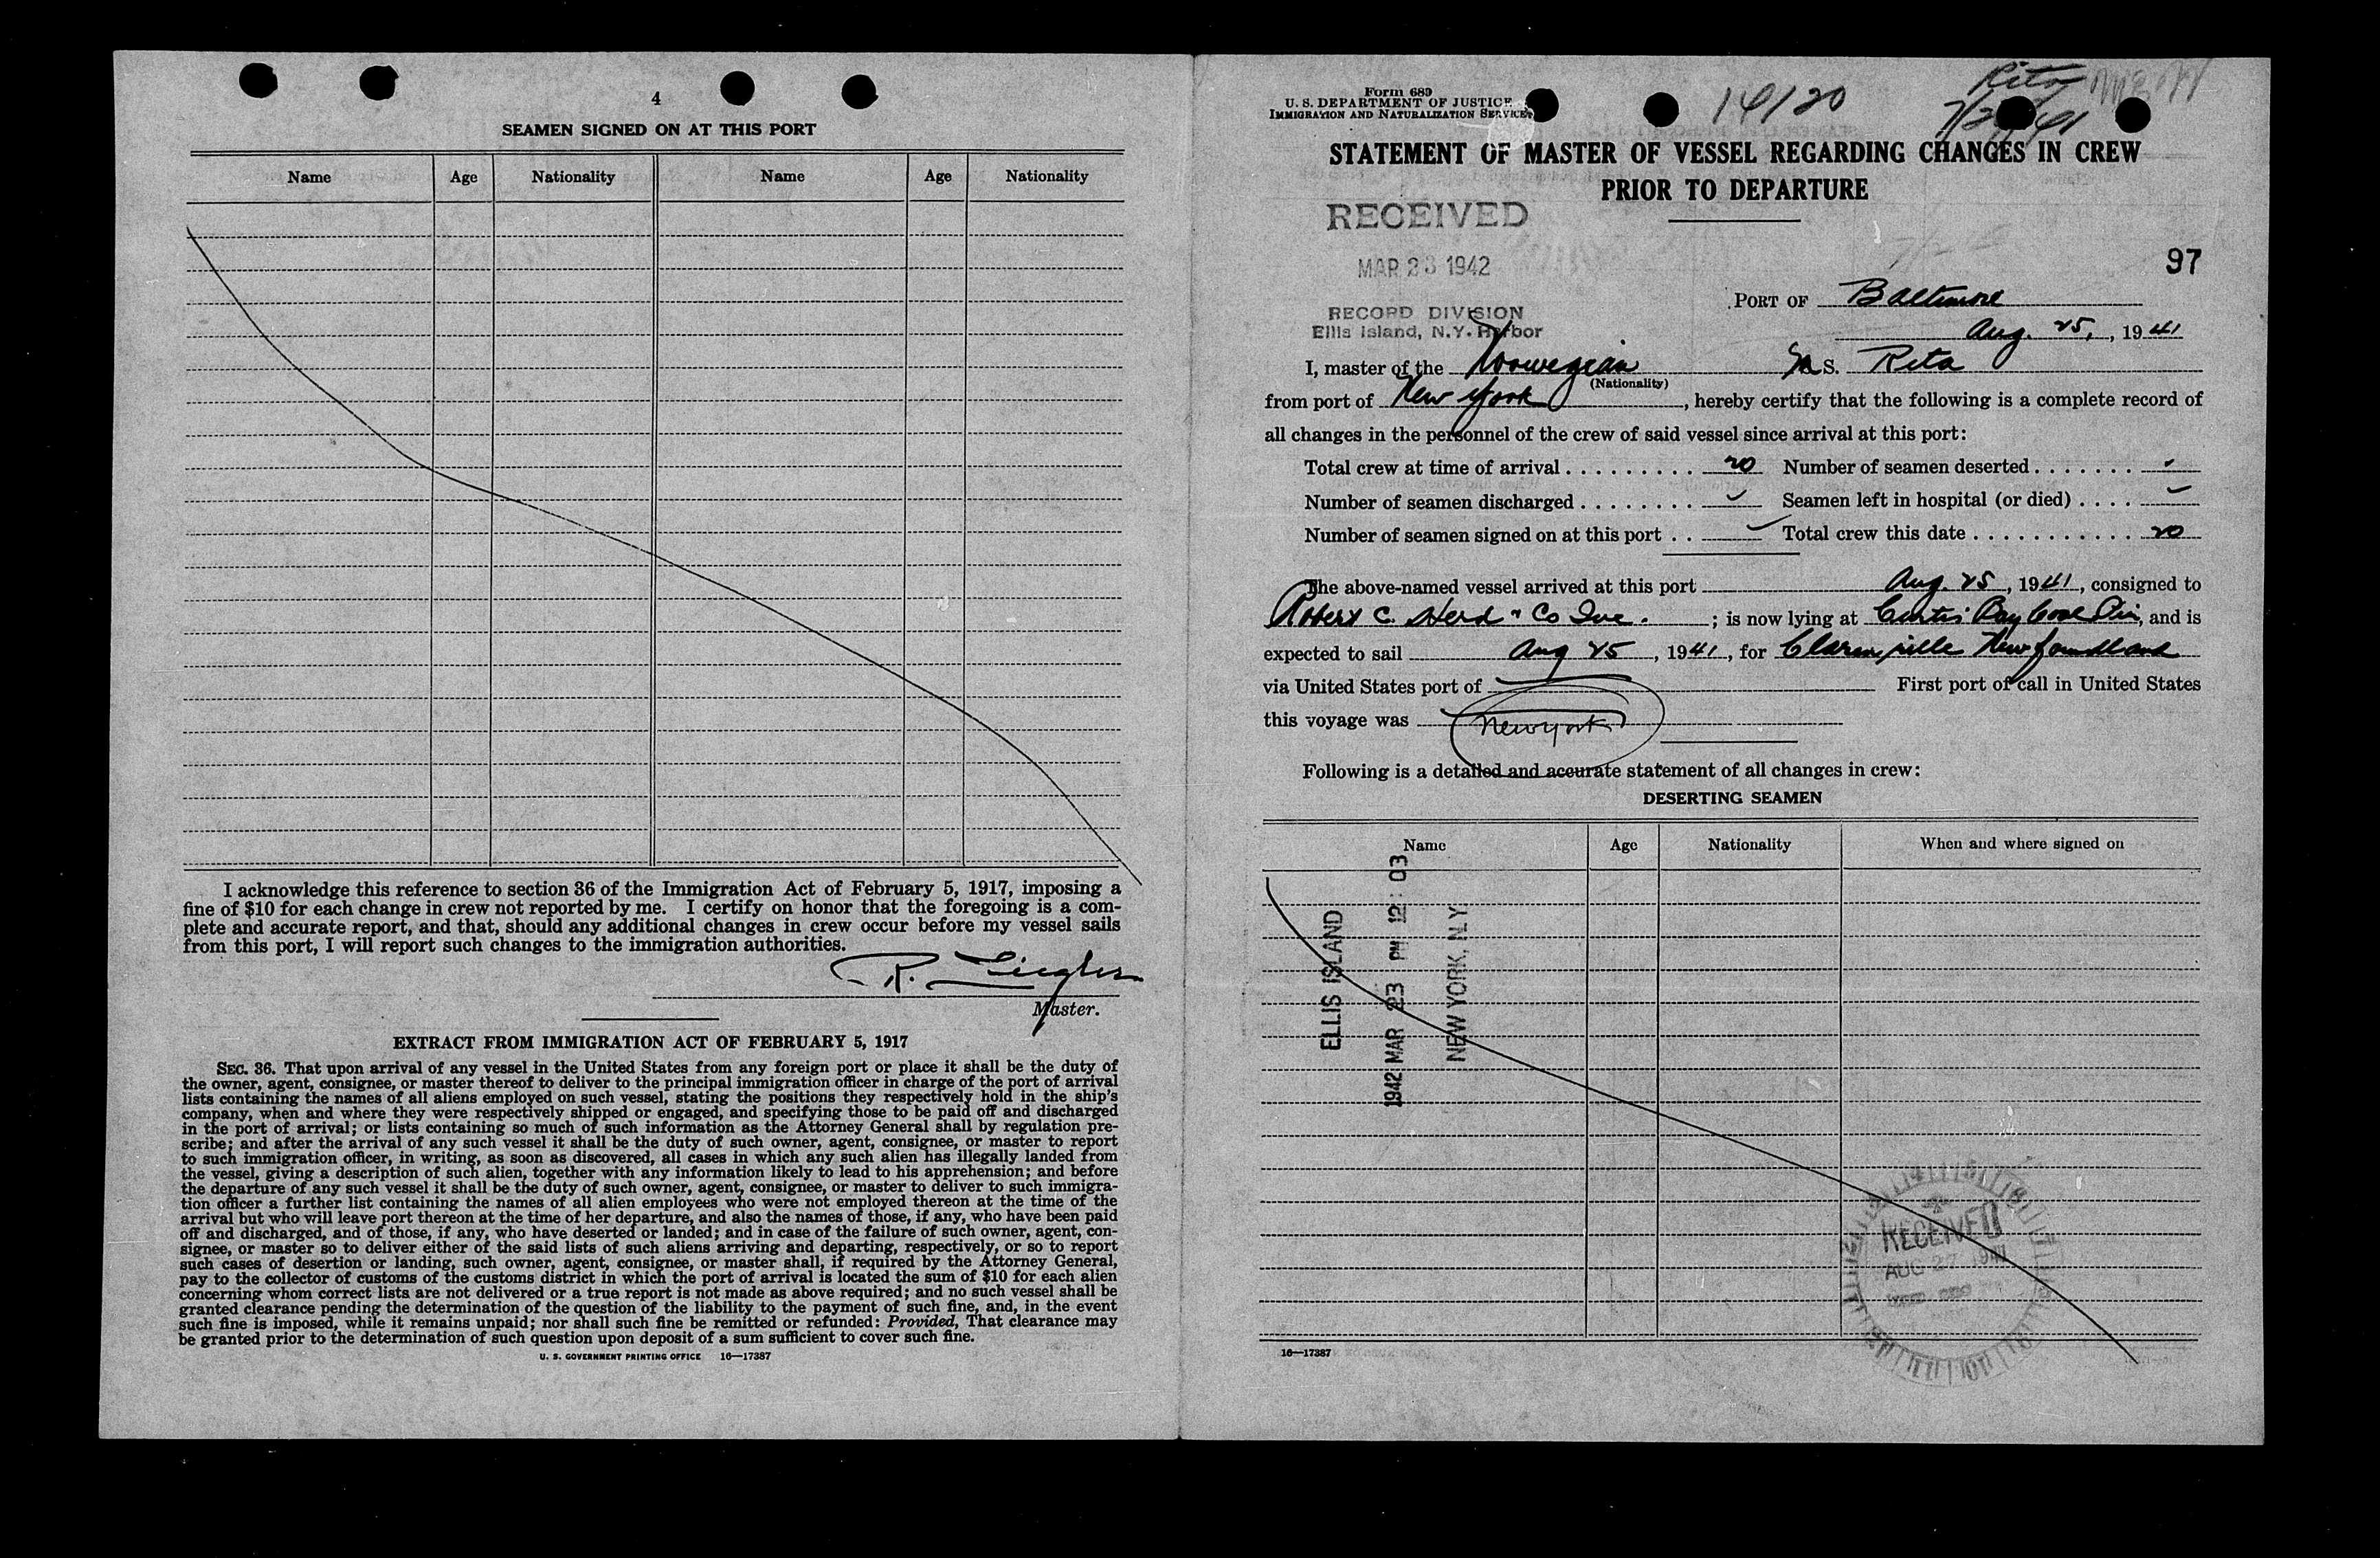 4
SEAMEN SIGNED ON AT THIS PORT
Name Age Nationality Name Age Nationality
I acknowledge this reference to section 36 of the Immigration Act of February 5, 1917, imposing a
fine of $10 for each change in crew not reported by me. I certify on honor that the foregoing is a com-
plete and accurate report, and that, should any additional changes in crew occur before my vessel sails
from this port, I will report such changes to the immigration authorities.
R.
Master.
EXTRACT FROM IMMIGRATION ACT OF FEBRUARY 5, 1917
SEC. 36. That upon arrival of any vessel in the United States from any foreign port or place it shall be the duty of
the owner, agent, consignee, or master thereof to deliver to the principal immigration officer in charge of the port of arrival
lists containing the names of all aliens employed on such vessel, stating the positions they respectively hold in the ship's
company, when and where they were respectively shipped or engaged, and specifying those to be paid off and discharged
in the port of arrival; or lists containing so much of such information as the Attorney General shall by regulation pre-
scribe; and after the arrival of any such vessel it shall be the duty of such owner, agent, consignee, or master to report
to such immigration officer, in writing, as soon as discovered, all cases in which any such alien has illegally landed from
the vessel, giving a description of such alien, together with any information likely to lead to his apprehension; and before
the departure of any such vessel it shall be the duty of such owner, agent, consignee, or master to deliver to such immigra-
tion officer a further list containing the names of all alien employees who were not employed thereon at the time of the
arrival but who will leave port thereon at the time of her departure, and also the names of those, if any, who have been paid
off and discharged, and of those, if any, who have deserted or landed; and in case of the failure of such owner, agent, con-
signee, or master so to deliver either of the said lists of such aliens arriving and departing, respectively, or so to report
such cases of desertion or landing, such owner, agent, consignee, or master shall, if required by the Attorney General,
pay to the collector of customs of the customs district in which the port of arrival is located the sum of $10 for each alien
concerning whom correct lists are not delivered or a true report is not made as above required; and no such vessel shall be
granted clearance pending the determination of the question of the liability to the payment of such fine, and, in the event
such fine is imposed, while it remains unpaid; nor shall such fine be remitted or refunded: Provided, That clearance may
be granted prior to the determination of such question upon deposit of a sum sufficient to cover such fine.
U. S. GOVERNMENT PRINTING OFFICE 16—17387
Form 689
U. S. DEPARTMENT OF JUSTICE
IMMIGRATION AND NATURALIZATION SERVICE
14120
Rita
STATEMENT OF MASTER OF VESSEL REGARDING CHANGES IN CREW
PRIOR TO DEPARTURE
RECEIVED
MAR 23 1942
RECORD DIVISION
Ellis Island, N.Y. Harbor
97
PORT OF Baltimore
Aug. 25, , 1941
I, master of the Norwegian S. Rita
(Nationality)
from port of New York , hereby certify that the following is a complete record of
all changes in the personnel of the crew of said vessel since arrival at this port:
Total crew at time of arrival . . . . . . . . . 20 Number of seamen deserted . . . . . . .
Number of seamen discharged . . . . . . . . Seamen left in hospital (or died) . . . .
Number of seamen signed on at this port . . Total crew this date . . . . . . . . . . . . 20
The above-named vessel arrived at this port Aug. 25 , 1941 , consigned to
Robert C. Herd & Co Inc. ; is now lying at Curtis Bay Coal Pier, and is
expected to sail Aug 25 , 1941 , for Clarenville Newfoundland
via United States port of First port of call in United States
this voyage was New York
Following is a detailed and accurate statement of all changes in crew:
DESERTING SEAMEN
Name Age Nationality When and where signed on
ELLIS ISLAND
1942 MAR 23 PM 12 : 03
NEW YORK, N.Y.
RECEIVED
AUG 27 1941
16—17387